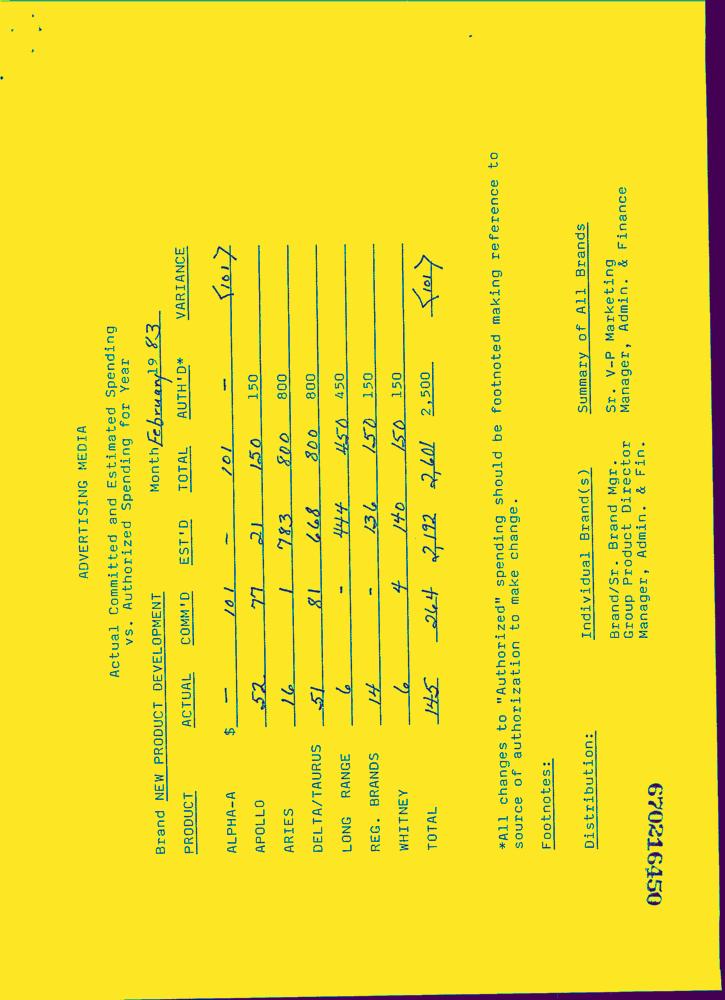 ADVERTISING MEDIA
Actual Committed and Estimated Spending
vs. Authorized Spending for Year
Brand NEW PRODUCT DEVELOPMENT Month February 19 83
PRODUCT ACTUAL COMM'D EST'D TOTAL AUTH'D* VARIANCE
ALPHA-A $ - 101 - 101 - <101>
APOLLO 52 77 21 150 150
ARIES 16 1 783 800 800
DELTA/TAURUS 51 81 668 800 800
LONG RANGE 6 - 444 450 450
REG. BRANDS 14 - 136 150 150
WHITNEY 6 4 140 150 150
TOTAL 145 264 2,192 2,601 2,500 <101>
*All changes to "Authorized" spending should be footnoted making reference to
source of authorization to make change.
Footnotes:
Distribution: Individual Brand(s) Summary of All Brands
Brand/Sr. Brand Mgr. Sr. V-P Marketing
Group Product Director Manager, Admin. & Finance
Manager, Admin. & Fin.
670216450